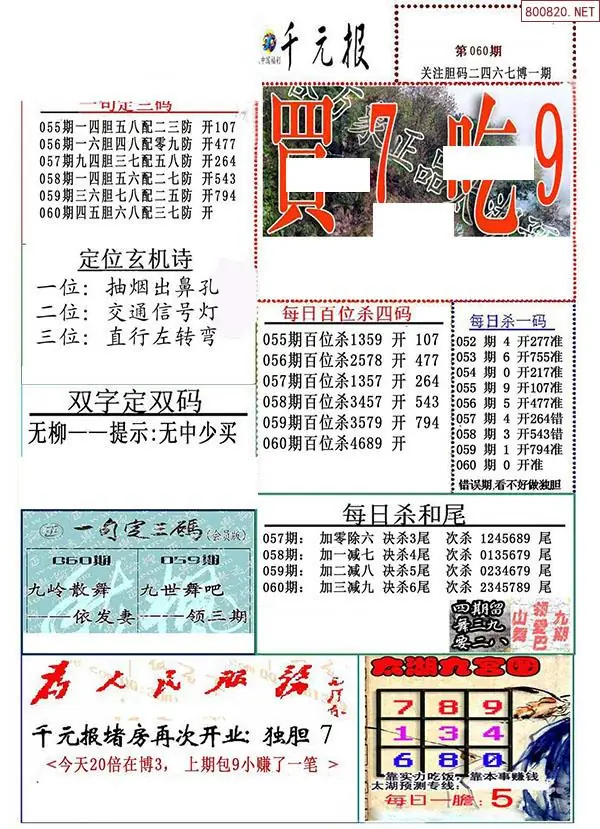 800820.NET
千元报
第060期
关注胆码二四六七博一期
買7吃9
一句定三码
055期一四胆五八配二三防 开107
056期一六胆四八配零九防 开477
057期九四胆三七配五八防 开264
058期一四胆五六配二七防 开543
059期三六胆七八配二五防 开794
060期四五胆六八配三七防 开
定位玄机诗
一位: 抽烟出鼻孔
二位: 交通信号灯
三位: 直行左转弯
每日百位杀四码
055期百位杀1359 开 107
056期百位杀2578 开 477
057期百位杀1357 开 264
058期百位杀3457 开 543
059期百位杀3579 开 794
060期百位杀4689 开
每日杀一码
052 期 4 开277准
053 期 6 开755准
054 期 0 开217准
055 期 9 开107准
056 期 5 开477准
057 期 4 开264错
058 期 3 开543错
059 期 1 开794准
060 期 0 开准
错误期,看不好做独胆
双字定双码
无柳——提示:无中少买
每日杀和尾
057期: 加零除六 决杀3尾 次杀 1245689 尾
058期: 加一减七 决杀4尾 次杀 0135679 尾
059期: 加二减八 决杀5尾 次杀 0234679 尾
060期: 加三减九 决杀6尾 次杀 2345789 尾
一句定三碼(会员版)
060期
九岭散舞
——依发妻
059期
九世舞吧
——领三期
四期留
舞三九
要二八
山舞
领爱巴
九湖
为人民服务
千元报堵房再次开业: 独胆 7
<今天20倍在博3, 上期包9小赚了一笔 >
太湖九宫图
7 8 9
1 3 4
6 8 0
靠实力吃饭, 靠本事赚钱
太湖预测专线:
每日一胆: 5